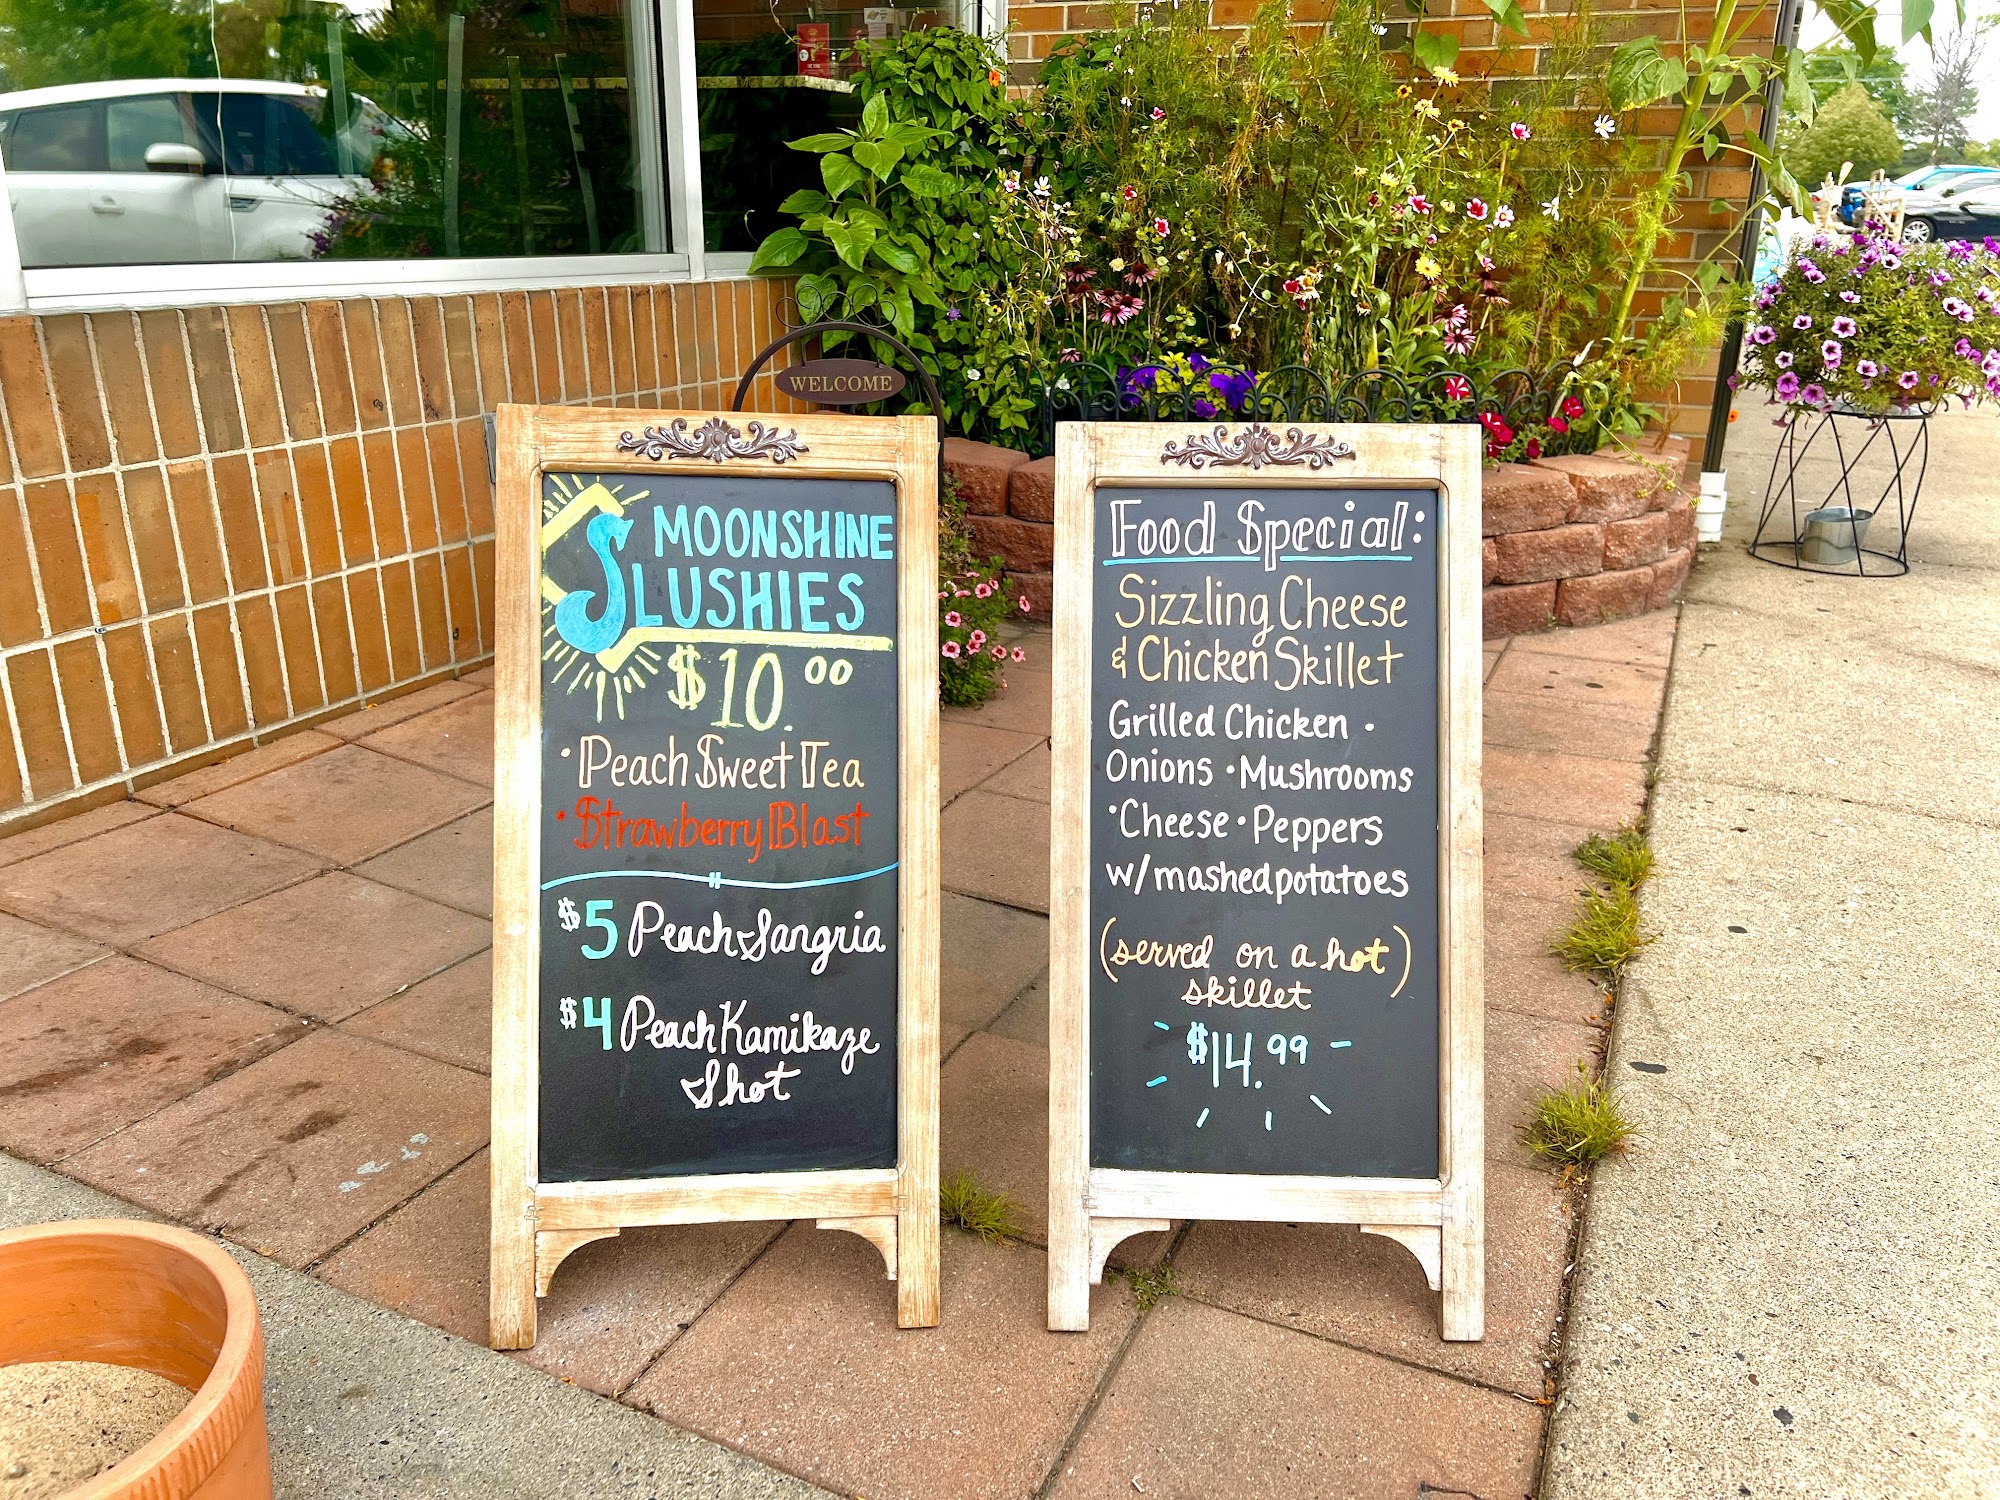 WELCOME
MOONSHINE
SLUSHIES
$10.00
• Peach Sweet Tea
• Strawberry Blast
$5 Peach Sangria
$4 Peach Kamikaze
Shot
Food Special:
Sizzling Cheese
& Chicken Skillet
Grilled Chicken •
Onions • Mushrooms
• Cheese • Peppers
w/ mashed potatoes
(served on a hot)
skillet
$14.99